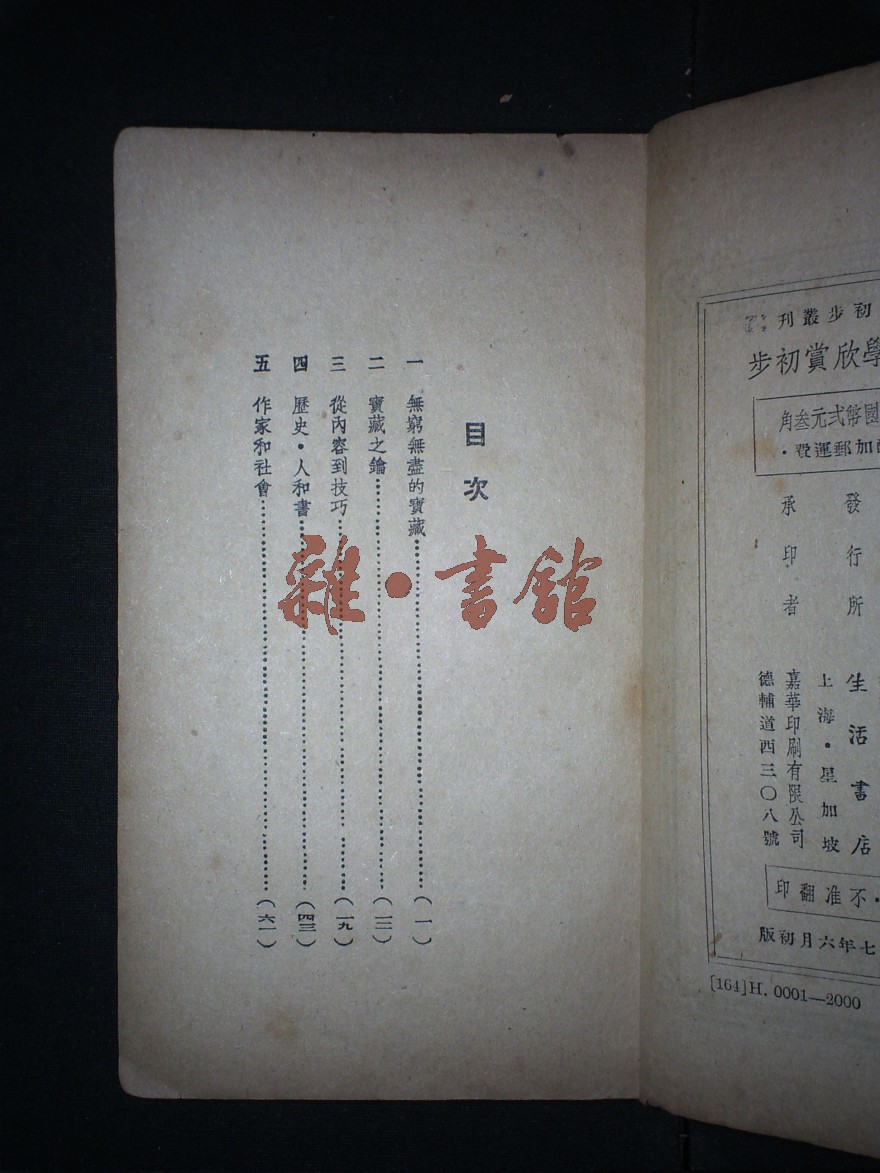 目次
一 無窮無盡的寶藏……（一）
二 寶藏之鑰……（一二）
三 從內容到技巧……（一九）
四 歷史·人和書……（四三）
五 作家和社會……（六一）
雜·書館
初步叢刊
學欣賞初步
國幣弍元叁角
加郵運費·
發行所 生活書店
上海·星加坡
承印者 嘉華印刷有限公司
德輔道西三〇八號
·不准翻印
七年六月初版
[164]H. 0001—2000